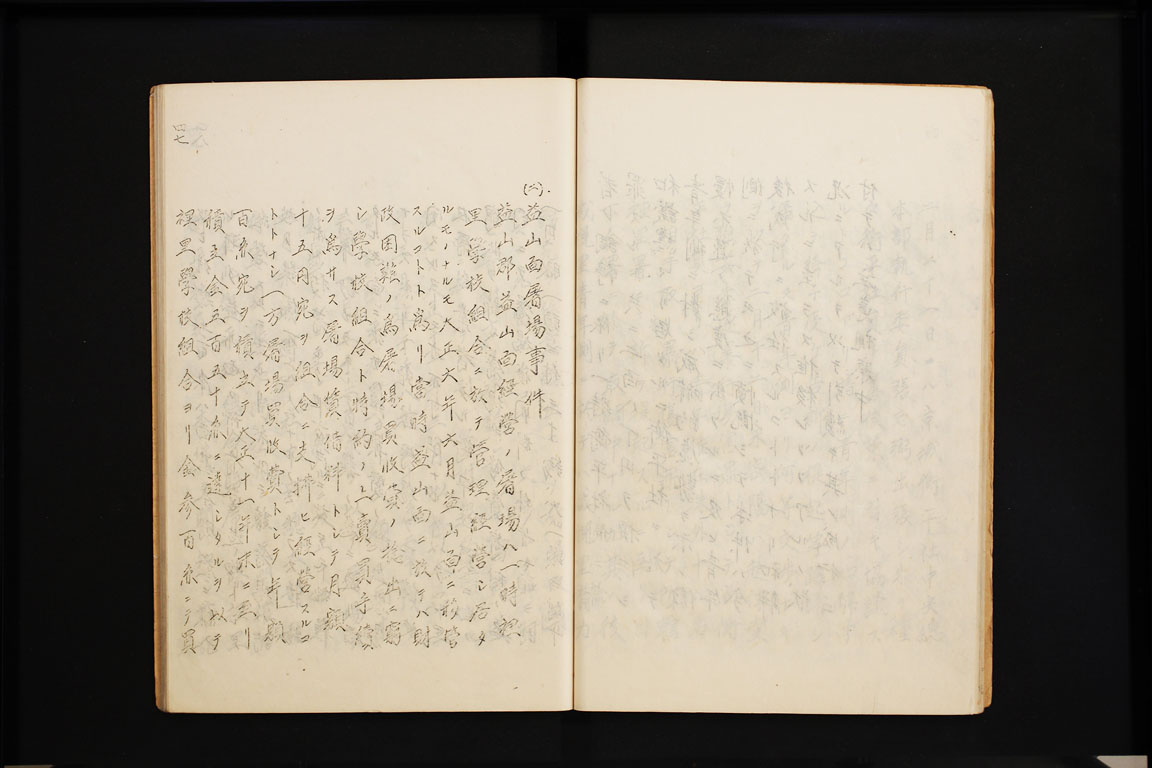 四七
(二).
益山面屠場事件
益山郡益山面経営ノ屠場ハ一時裡
里学校組合ニ於テ管理経営シ居タ
ルモノナルモ大正六年六月益山面ニ移管
スルコトト為リ当時益山面ニ於テハ財
政困難ノ為屠場買収費ノ捻出ニ窮
シ学校組合ト特約ノ上売買手続
ヲ為サス屠場賃借料トシテ月額
十五円宛ヲ組合ニ支拂ヒ経営スルコ
トトナシ一方屠場買收費トシテ年額
百円宛ヲ積立テ大正十一年末ニ至リ
積立金五百五十円ニ達シタルヲ以テ
裡里學校組合ヨリ金参百円ニテ買